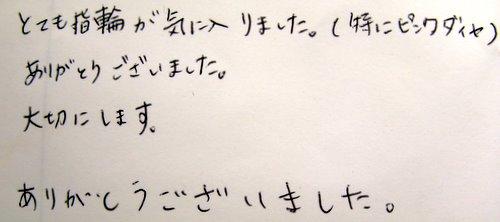 とても指輪が気に入りました。(特にピンクダイヤ)
ありがとうございました。
大切にします。
ありがとうございました。